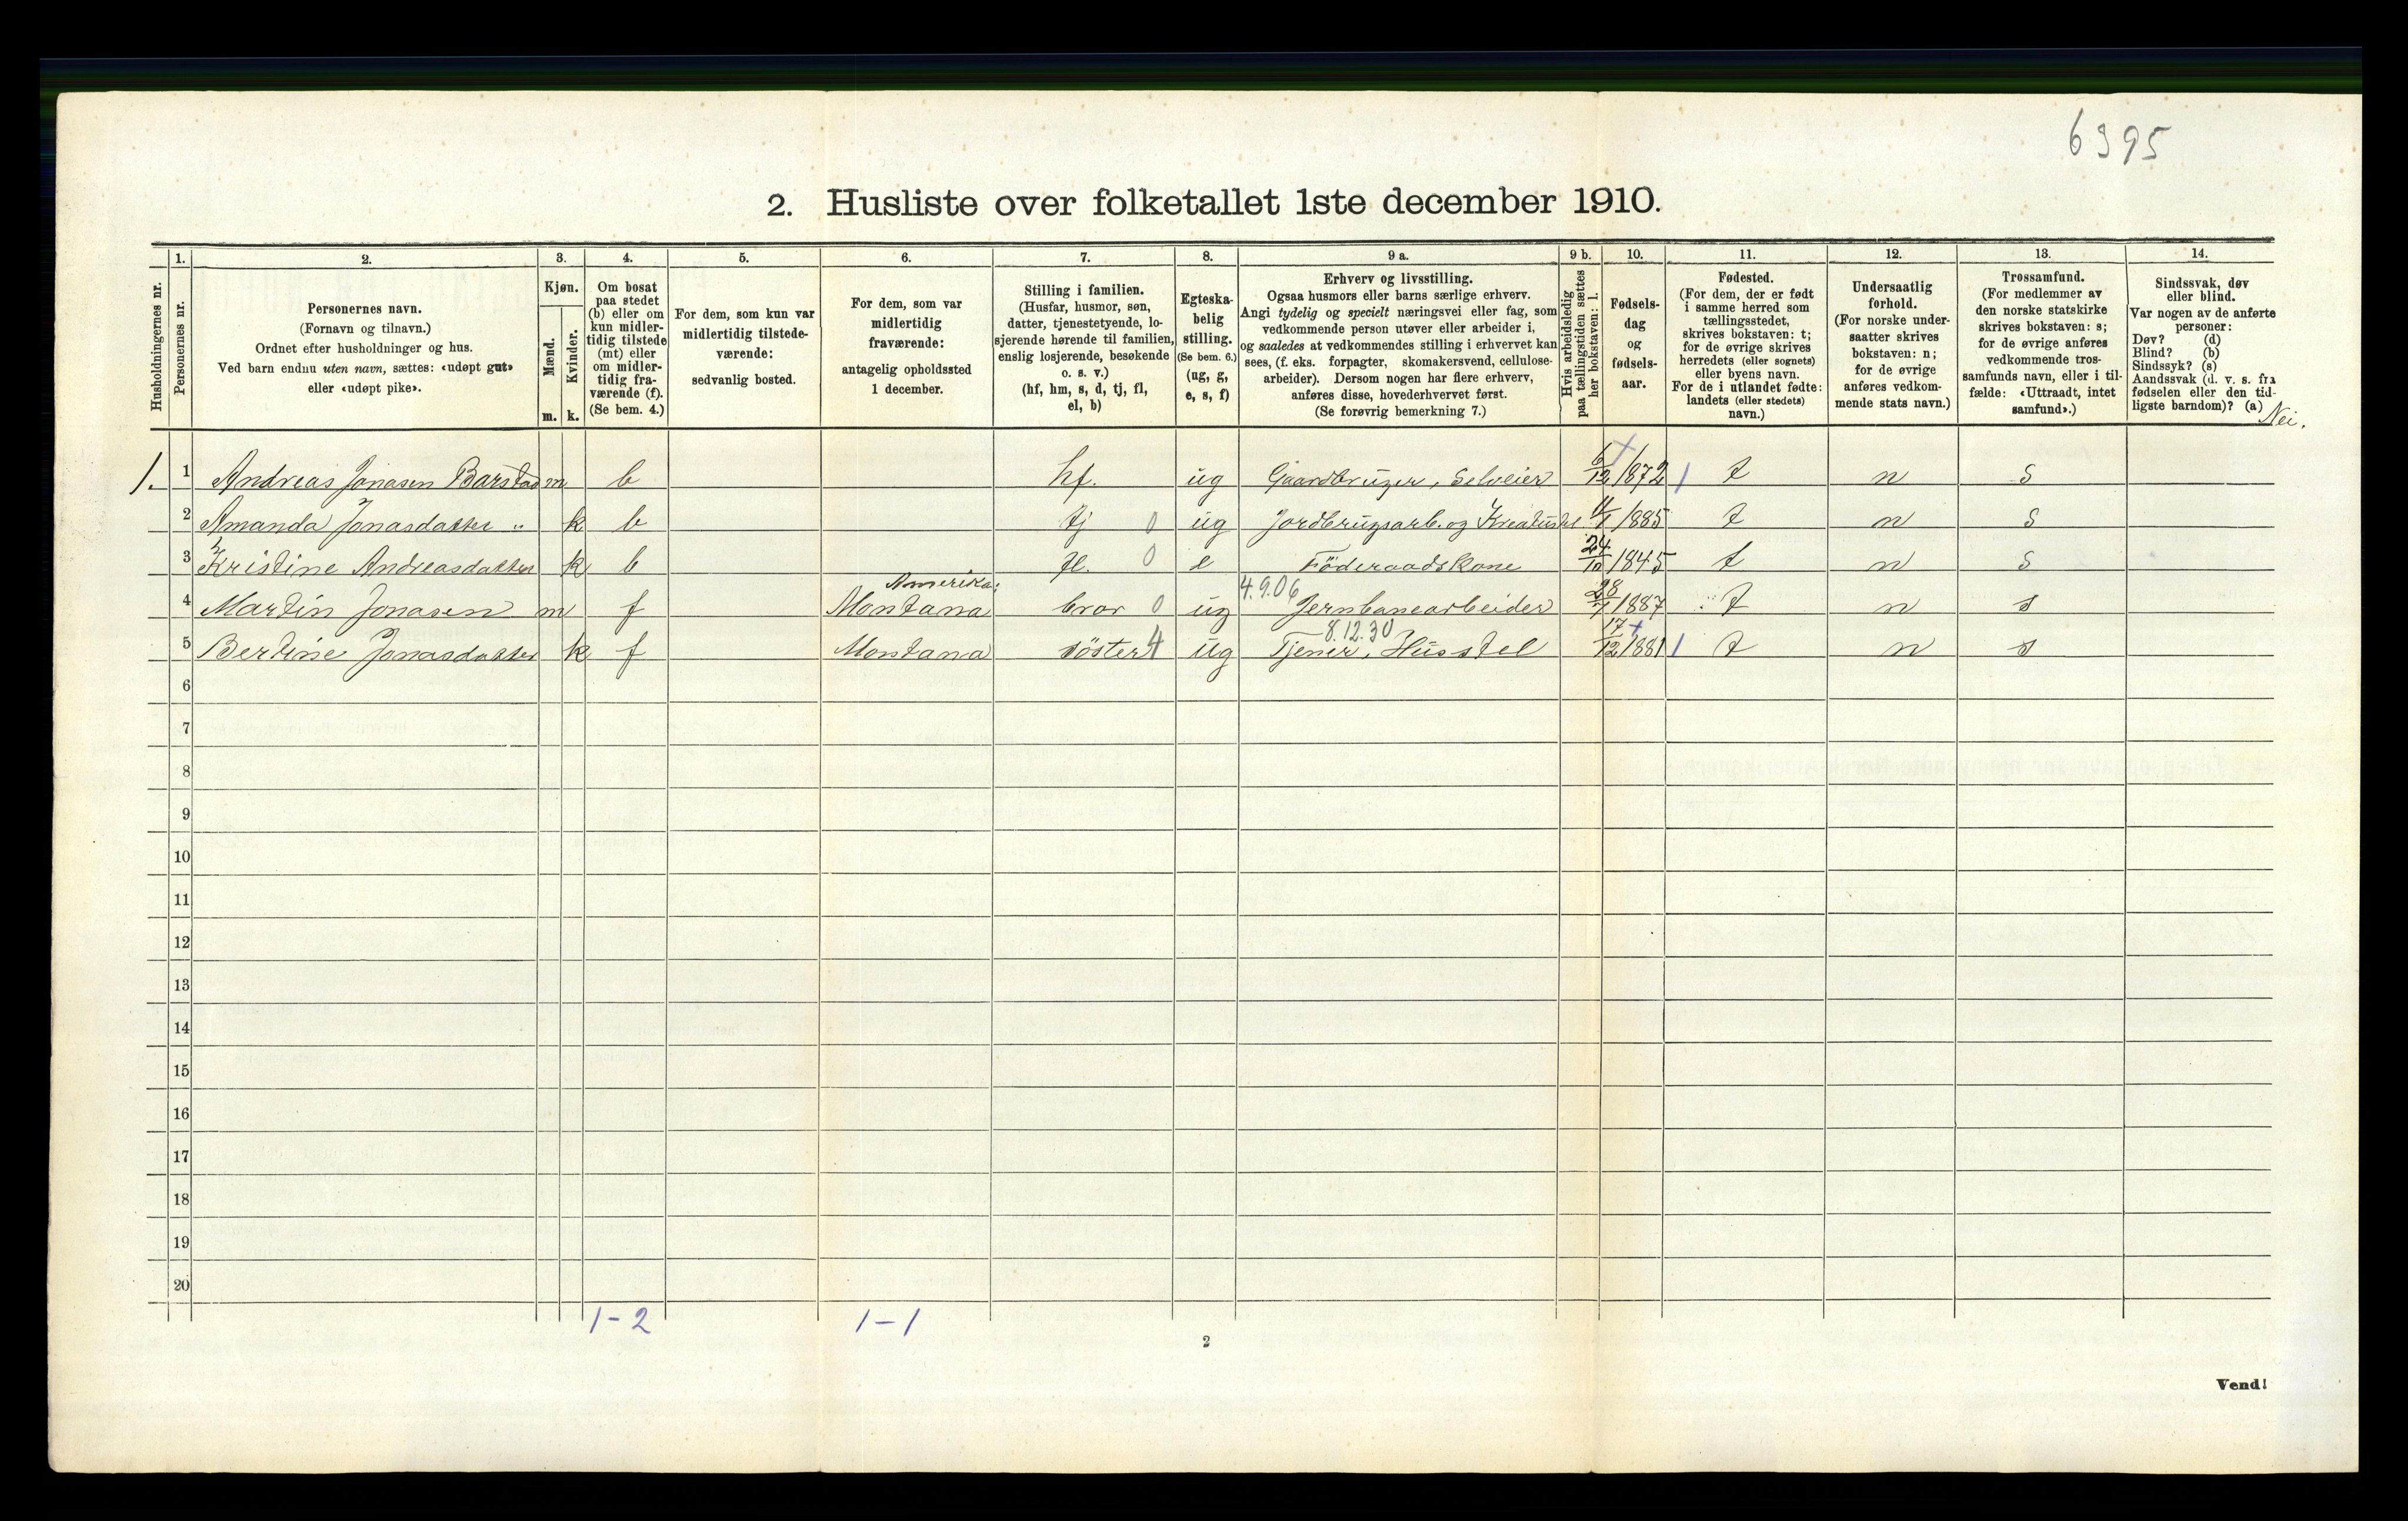 6395
2. Husliste over folketallet 1ste december 1910.
Husholdningernes nr.
1.
Personernes nr.
2.
Personernes navn.
(Fornavn og tilnavn.)
Ordnet efter husholdninger og hus.
Ved barn endnu uten navn, sættes: «udøpt gut»
eller «udøpt pike».
3.
Kjøn.
Mænd.
m.
Kvinder.
k.
4.
Om bosat
paa stedet
(b) eller om
kun midler-
tidig tilstede
(mt) eller
om midler-
tidig fra-
værende (f).
(Se bem. 4.)
5.
For dem, som kun var
midlertidig tilstede-
værende:
sedvanlig bosted.
6.
For dem, som var
midlertidig
fraværende:
antagelig opholdssted
1 december.
7.
Stilling i familien.
(Husfar, husmor, søn,
datter, tjenestetyende, lo-
sjerende hørende til familien,
enslig losjerende, besøkende
o. s. v.)
(hf, hm, s, d, tj, fl,
el, b)
8.
Egteska-
belig
stilling.
(Se bem. 6.)
(ug, g,
e, s, f)
9 a.
Erhverv og livsstilling.
Ogsaa husmors eller barns særlige erhverv.
Angi tydelig og specielt næringsvei eller fag, som
vedkommende person utøver eller arbeider i,
og saaledes at vedkommendes stilling i erhvervet kan
sees, (f. eks. forpagter, skomakersvend, cellulose-
arbeider). Dersom nogen har flere erhverv,
anføres disse, hovederhvervet først.
(Se forøvrig bemerkning 7.)
9 b.
Hvis arbeidsledig
paa tællingstiden sættes
her bokstaven: l.
10.
Fødsels-
dag
og
fødsels-
aar.
11.
Fødested.
(For dem, der er født
i samme herred som
tællingsstedet,
skrives bokstaven: t;
for de øvrige skrives
herredets (eller sognets)
eller byens navn.
For de i utlandet fødte:
landets (eller stedets)
navn.)
12.
Undersaatlig
forhold.
(For norske under-
saatter skrives
bokstaven: n;
for de øvrige
anføres vedkom-
mende stats navn.)
13.
Trossamfund.
(For medlemmer av
den norske statskirke
skrives bokstaven: s;
for de øvrige anføres
vedkommende tros-
samfunds navn, eller i til-
fælde: «Uttraadt, intet
samfund».)
14.
Sindssvak, døv
eller blind.
Var nogen av de anførte
personer:
Døv? (d)
Blind? (b)
Sindssyk? (s)
Aandssvak (d. v. s. fra
fødselen eller den tid-
ligste barndom)? (a)
Nei.
1. 1 Andreas Jonasen Barstad m b hf. ug Gaardbruger, Selveier 6/12 1872 1 t n s
2 Amanda Jonasdatter " k b tj 0 ug Jordbrugsarb. og Kreaturst. 11/1 1885 t n s
3 Kristine Andreasdatter k b fl. 0 e Föderaadskone 24/10 1845 t n s
Amerika:
4 Martin Jonasen m f Montana bror 0 ug 4.9.06 Jernbanearbeider 28/7 1887 t n s
5 Bertine Jonasdatter k f Montana söster 4 ug 8.12.30 Tjener, Husstel 17/12 1881 1 t n s
6
7
8
9
10
11
12
13
14
15
16
17
18
19
20
1-2 1-1
2
Vend!